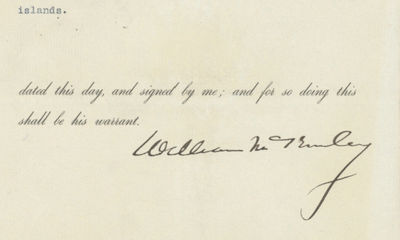 islands.
dated this day, and signed by me; and for so doing this
shall be his warrant.
William McKinley